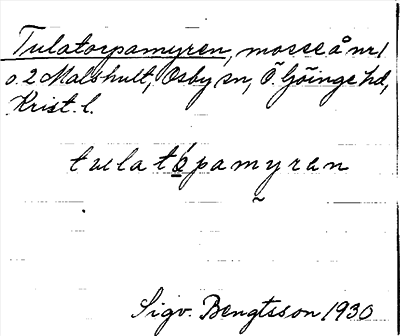 Tulatorpamyren, mosse å nr 1
o. 2 Malshult, Osby sn, Ö. Göinge hd,
Krist. l.
tulatópamyran
Sigv. Bengtsson 1930